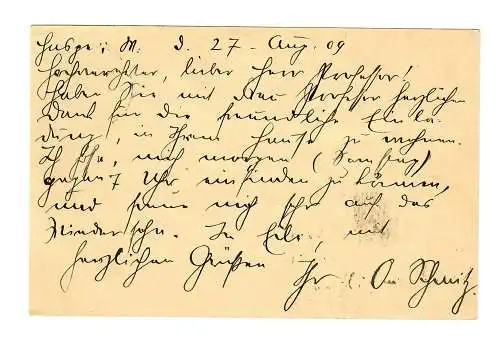 d. 27. Aug. 09
Hochverehrter, lieber Herr Professor!
Haben Sie mit Frau Professor herzlichen
Dank für die freundliche Einla-
dung, in Ihrem Hause zu wohnen.
Ich hoffe, mich morgen (Samstag)
gegen 7 Uhr einfinden zu können,
und freue mich sehr auf das
Wiedersehn. In Eile, mit
herzlichen Grüßen
Ihr